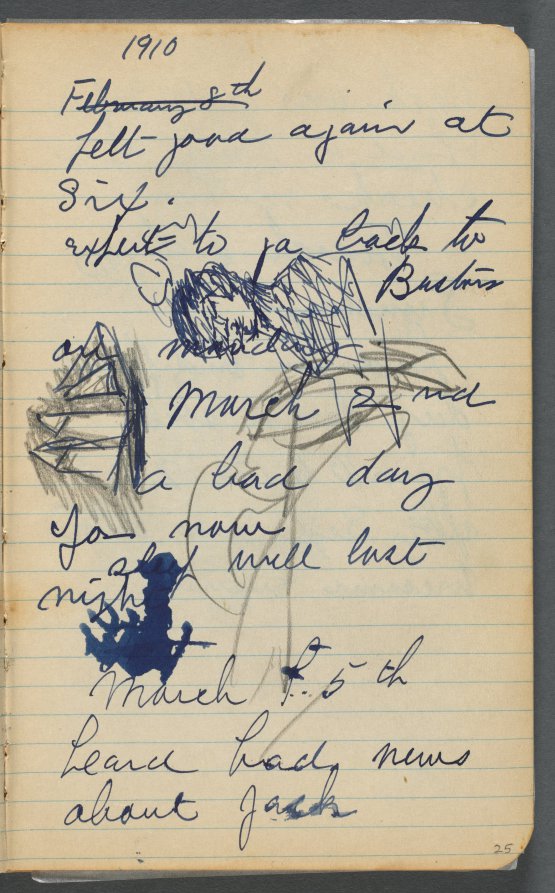 1910
February 8th
felt good again at
Six.
expect to go back to
Bustins
on monday
March 2nd
a bad day
for now
slept well last
night
March 5th
heard bad news
about Jack
25